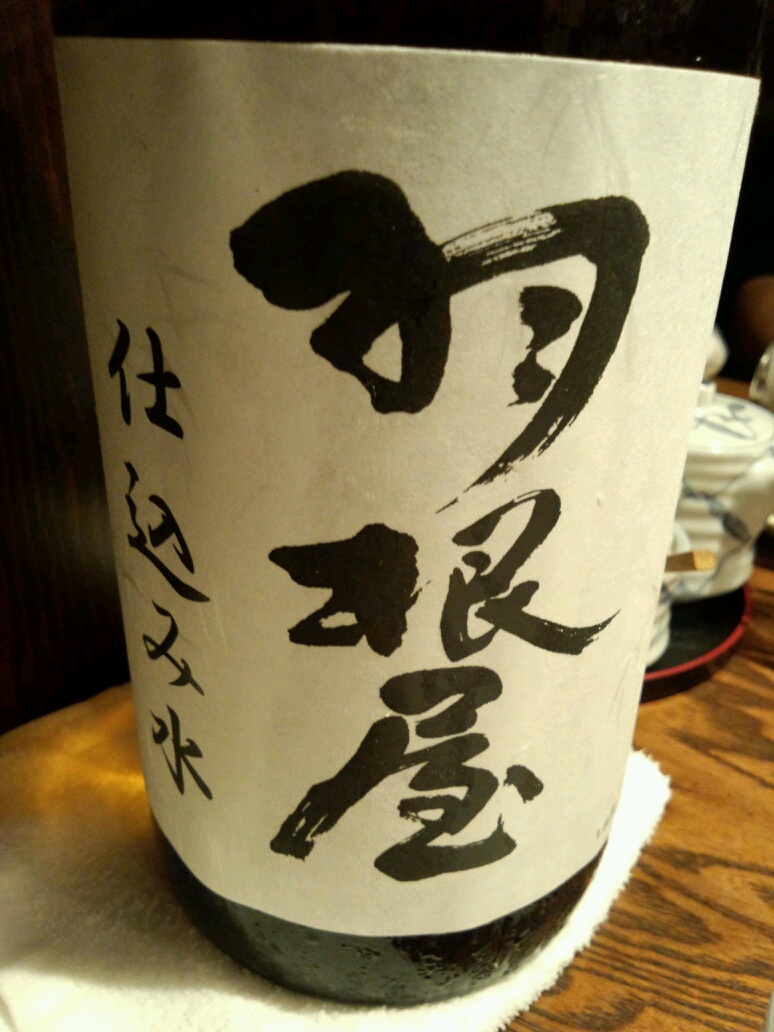 羽根屋
仕込み水